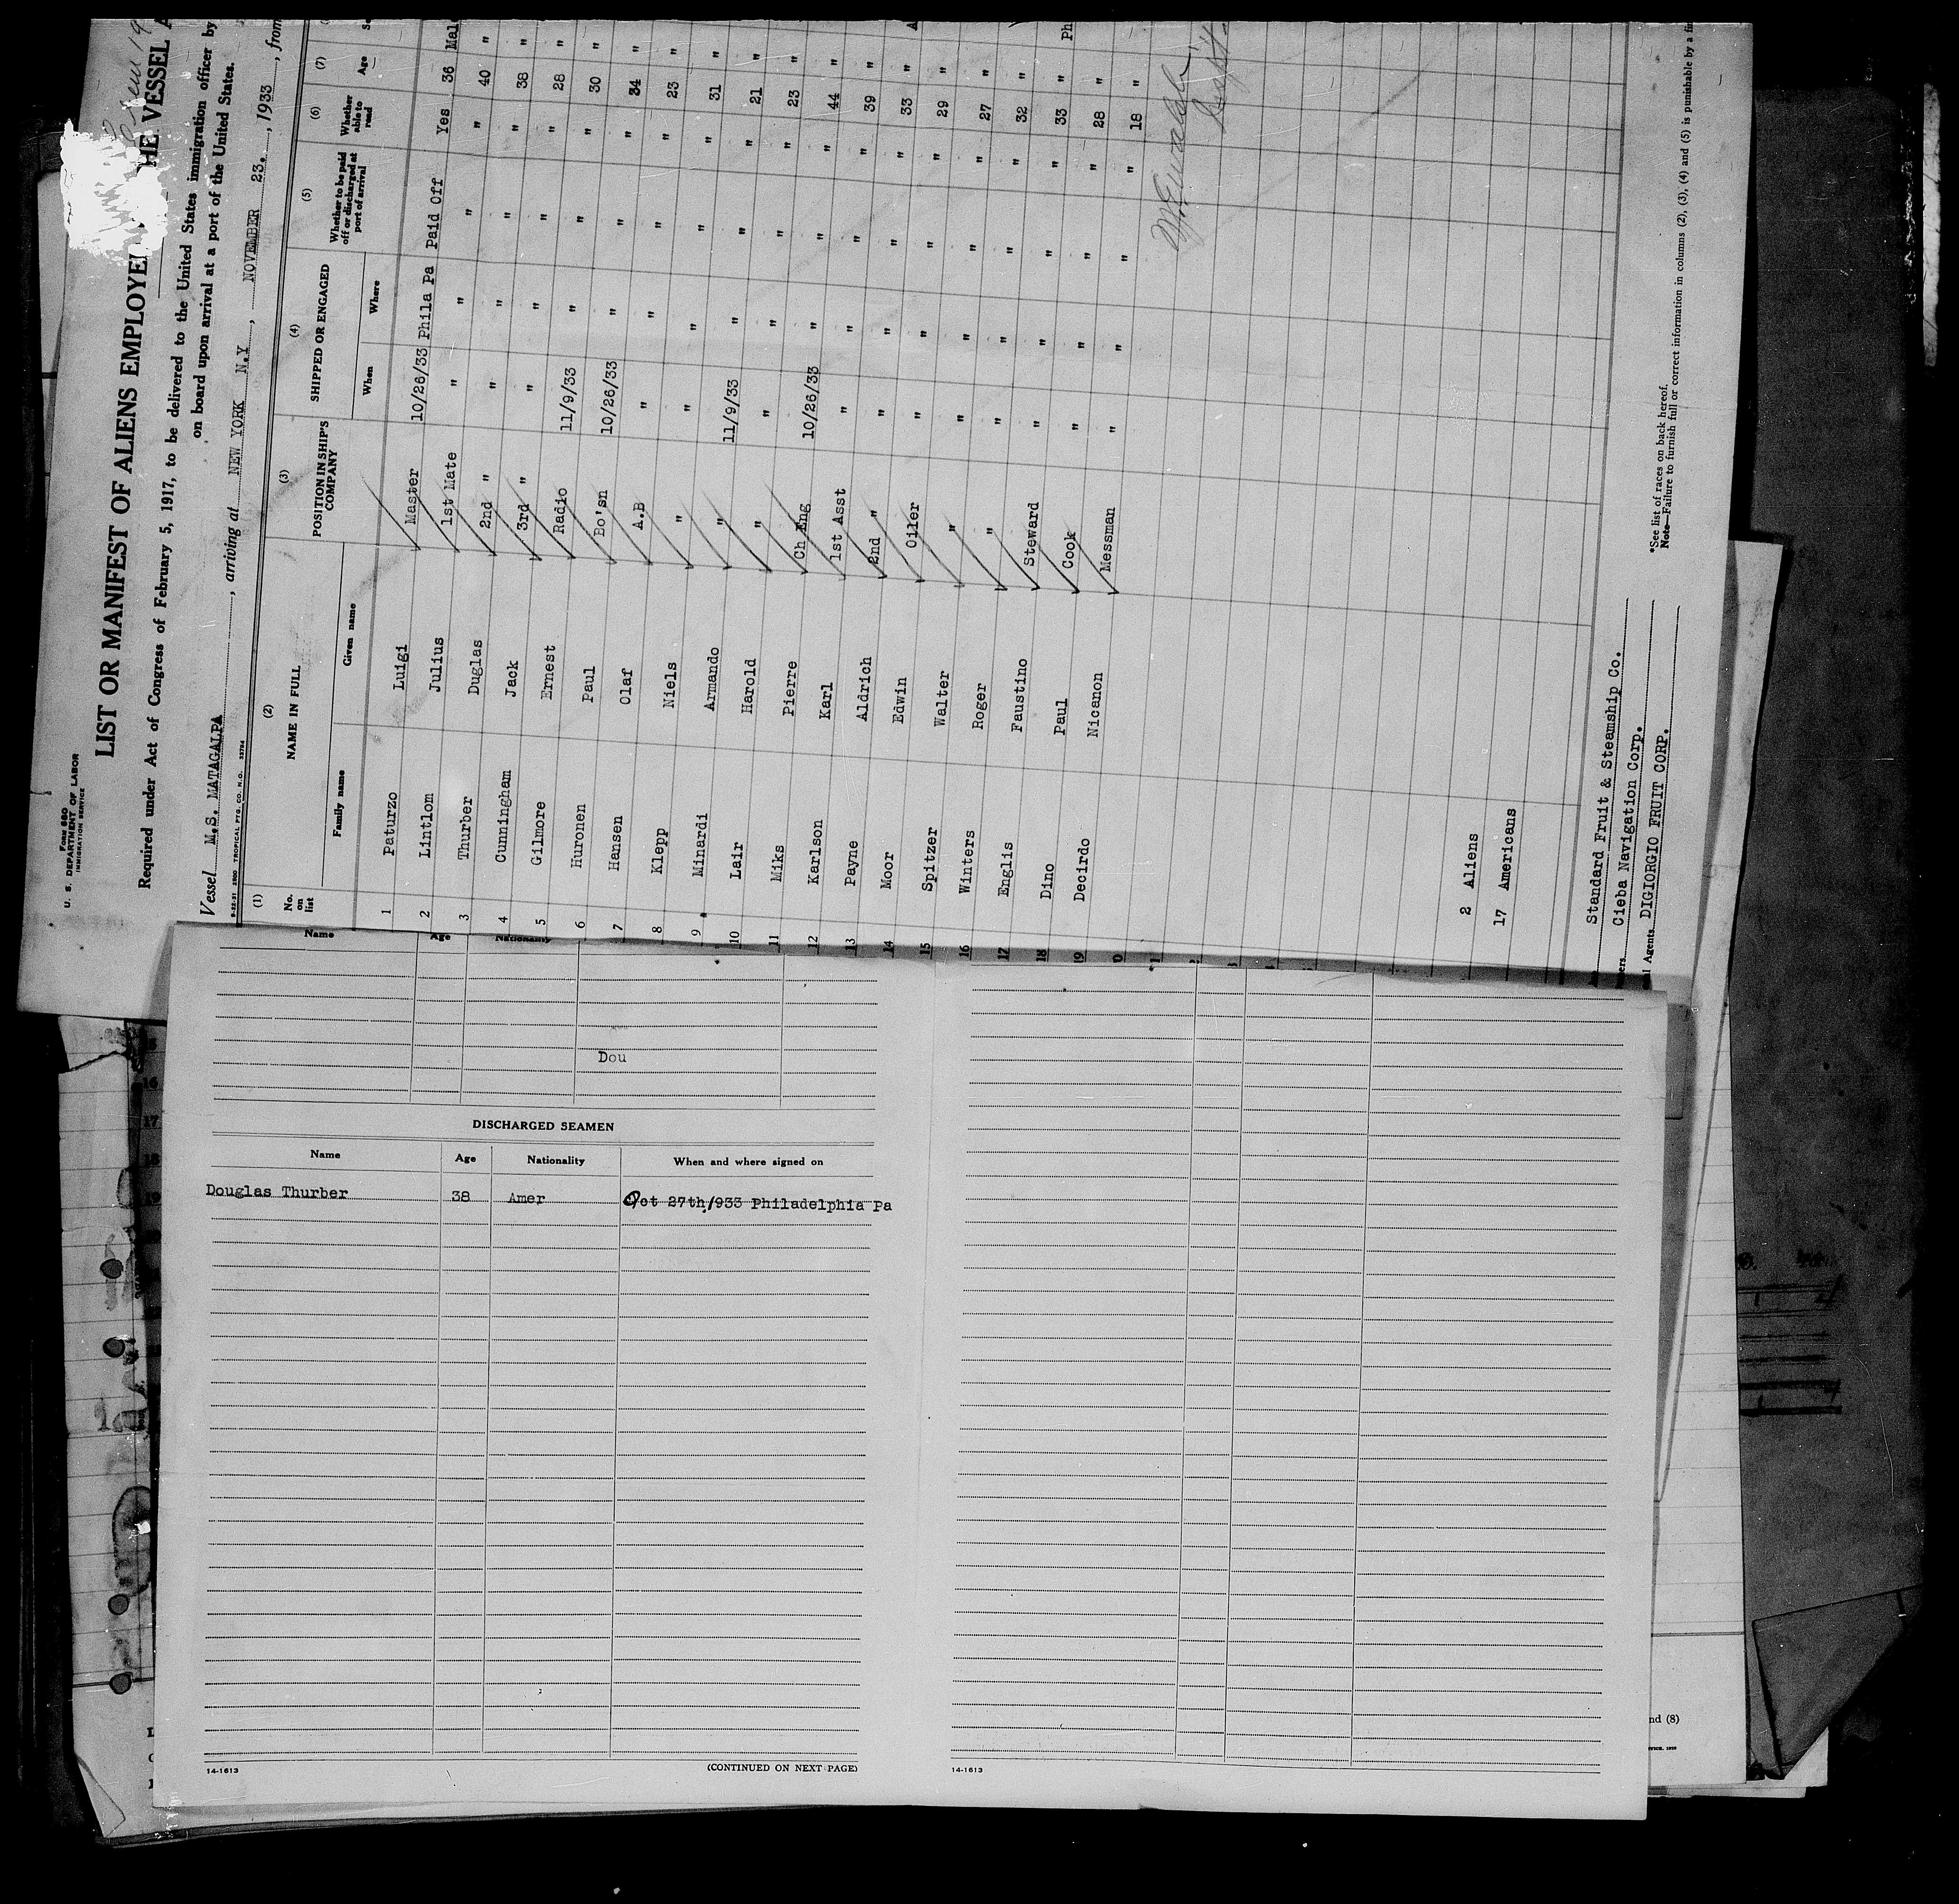 Form 680
U. S. DEPARTMENT OF LABOR
IMMIGRATION SERVICE
LIST OR MANIFEST OF ALIENS EMPLOYE HE VESSEL A
Required under Act of Congress of February 5, 1917, to be delivered to the United States immigration officer by
on board upon arrival at a port of the United States.
Vessel M.S. MATAGALPA, arriving at NEW YORK N.Y, NOVEMBER 23., 1933, from
(1) (2) (3) (4) (5) (6) (7)
No. on list NAME IN FULL POSITION IN SHIP'S COMPANY SHIPPED OR ENGAGED Whether to be paid off or discharged at port of arrival Whether able to read Age
Family name Given name When Where
1 Paturzo Luigi Master 10/26/33 Phila Pa Paid Off Yes 36 Mal
2 Lintlom Julius 1st Mate " " " " 40 "
3 Thurber Duglas 2nd " " " " " 38 "
4 Cunningham Jack 3rd " " " " " 28 "
5 Gilmore Ernest Radio 11/9/33 " " " 30 "
6 Huronen Paul Bo'sn 10/26/33 " " " 34 "
7 Hansen Olaf A.B " " " " 23 "
8 Klepp Niels " " " " " 31 "
9 Minardi Armando " 11/9/33 " " " 21 "
10 Lair Harold " " " " " 23 "
11 Miks Pierre Ch Eng 10/26/33 " " " 44 "
12 Karlson Karl 1st Asst " " " " 39 "
13 Payne Aldrich 2nd " " " " " 33 "
14 Moor Edwin Oiler " " " " 29 "
15 Spitzer Walter " " " " " 27 "
16 Winters Roger " " " " " 32 "
17 Englis Faustino Steward " " " " 33 "
18 Dino Paul Cook " " " " 28 "
19 Decirdo Nicanon Messman " " " " 18 "
2 Aliens
17 Americans
Standard Fruit & Steamship Co.
Cieba Navigation Corp.
l Agents DIGIORGIO FRUIT CORP.
*See list of races on back hereof.
Note—Failure to furnish full or correct information in columns (2), (3), (4) and (5) is punishable by a fin
Name Age Nationality
Dou
DISCHARGED SEAMEN
Name Age Nationality When and where signed on
Douglas Thurber 38 Amer Oct 27th/933 Philadelphia Pa
14-1613 (CONTINUED ON NEXT PAGE)
14-1613
16
17
18
19
nd (8)